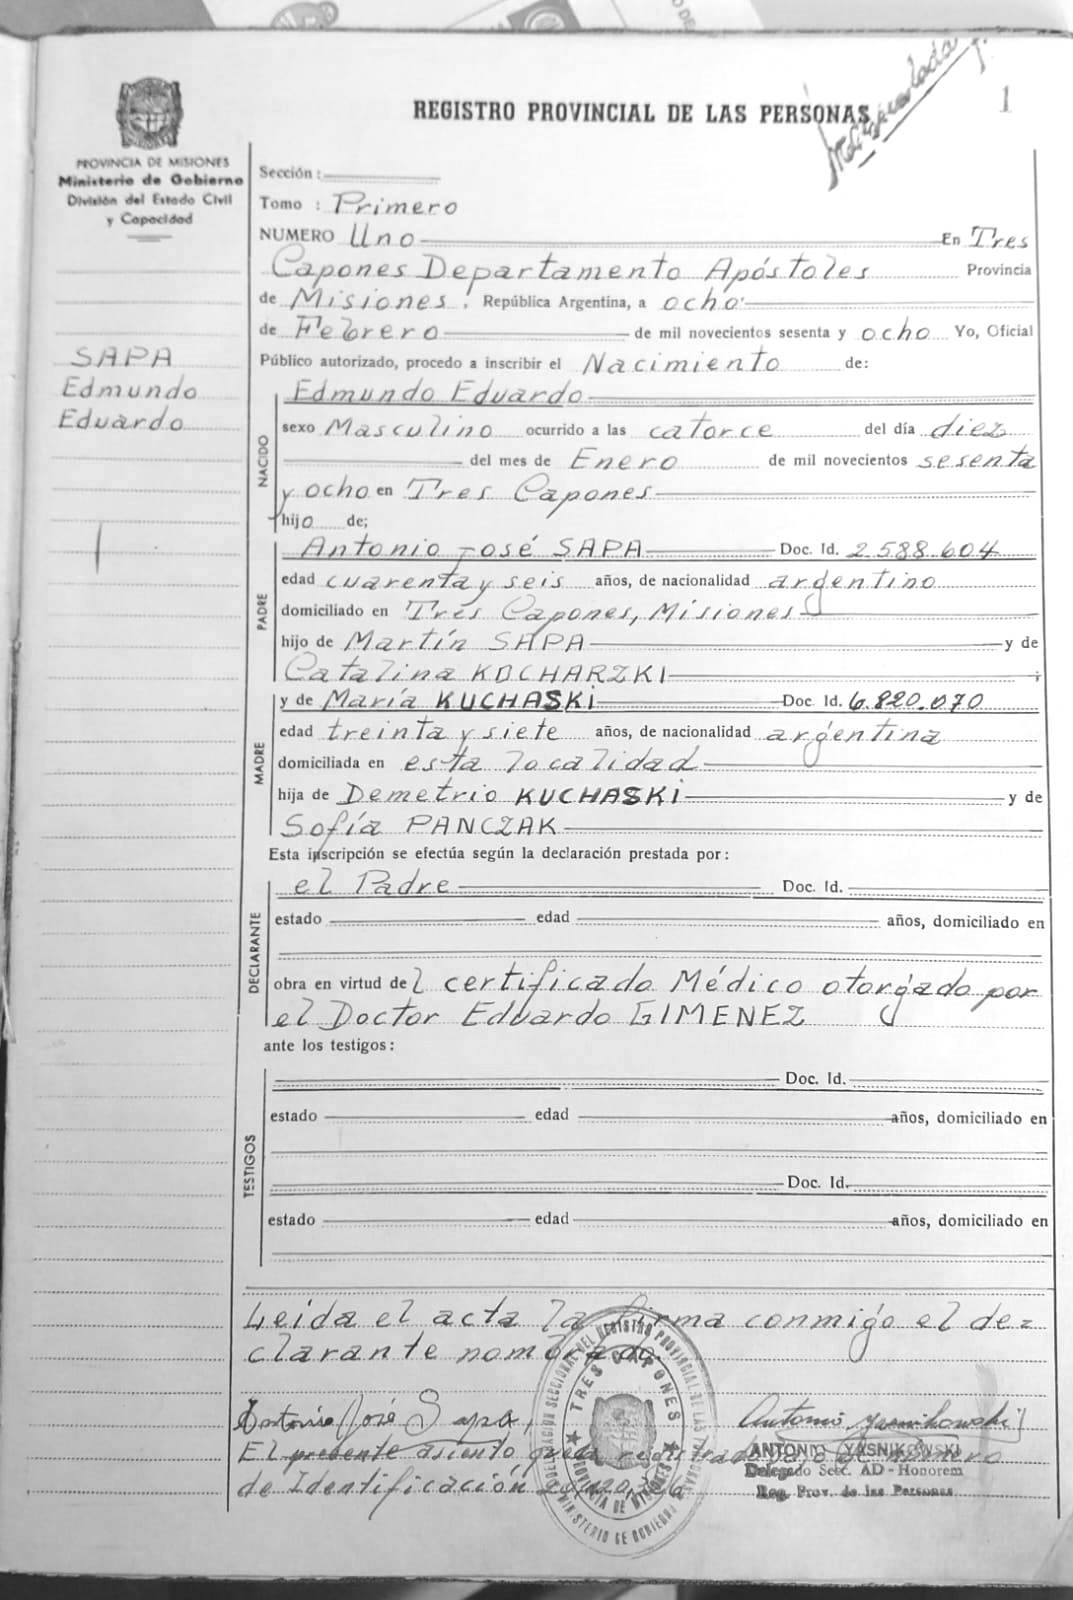 REGISTRO PROVINCIAL DE LAS PERSONAS
1
PROVINCIA DE MISIONES
Ministerio de Gobierno
División del Estado Civil
y Capacidad
Sección:
Tomo : Primero
NUMERO Uno En Tres
Capones Departamento Apóstoles Provincia
de Misiones, República Argentina, a ocho
de Febrero de mil novecientos sesenta y ocho Yo, Oficial
Público autorizado, procedo a inscribir el Nacimiento de:
SAPA
Edmundo
Eduardo
NACIDO
Edmundo Eduardo
sexo Masculino ocurrido a las catorce del día diez
del mes de Enero de mil novecientos sesenta
y ocho en Tres Capones
hijo de;
PADRE
Antonio José SAPA Doc. Id. 2.588.604
edad cuarenta y seis años, de nacionalidad argentino
domiciliado en Tres Capones, Misiones
hijo de Martín SAPA y de
Catalina KOCHARZKI ;
MADRE
y de María KUCHASKI Doc. Id. 6.820.070
edad treinta y siete años, de nacionalidad argentina
domiciliada en esta localidad
hija de Demetrio KUCHASKI y de
Sofía PANCZAK
Esta inscripción se efectúa según la declaración prestada por:
DECLARANTE
el Padre Doc. Id.
estado edad años, domiciliado en
obra en virtud del certificado Médico otorgado por
el Doctor Eduardo GIMENEZ
ante los testigos:
TESTIGOS
Doc. Id.
estado edad años, domiciliado en
Doc. Id.
estado edad años, domiciliado en
Leida el acta la firma conmigo el de=
clarante nombrado.
Antonio José Sapa
Antonio Yasnikowski
El presente asiento queda registrado bajo el número
de Identificación
ANTONIO YASNIKOWSKI
Delegado Secc. AD-Honorem
Reg. Prov. de las Personas
DELEGACION SECCIONAL DEL REGISTRO PROVINCIAL DE LAS PERSONAS
TRES CAPONES
PROVINCIA DE MISIONES
MINISTERIO DE GOBIERNO